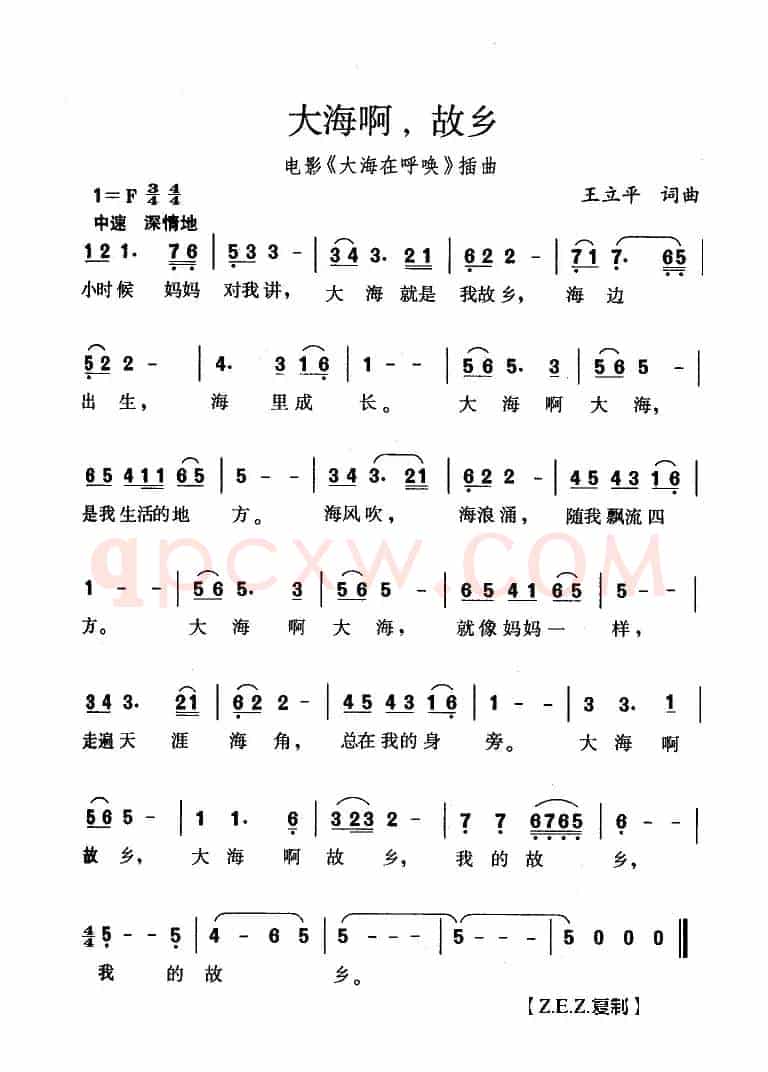 大海啊，故乡
电影《大海在呼唤》插曲
1=F 3/4 4/4 王立平 词曲
中速 深情地
1 2 1. 7 6 | 5 3 3 - | 3 4 3. 2 1 | 6 2 2 - | 7 1 7. 6 5 |
小时候 妈妈 对我讲， 大 海 就是 我故乡， 海 边
5 2 2 - | 4. 3 1 6 | 1 - - | 5 6 5. 3 | 5 6 5 - |
出 生， 海 里 成 长。 大 海 啊 大 海，
6 5 4 1 1 6 5 | 5 - - | 3 4 3. 2 1 | 6 2 2 - | 4 5 4 3 1 6 |
是我 生活的地 方。 海风吹， 海浪涌， 随我飘流四
qpcxw.COM
1 - - | 5 6 5. 3 | 5 6 5 - | 6 5 4 1 6 5 | 5 - - |
方。 大 海 啊 大 海， 就像妈妈一 样，
3 4 3. 2 1 | 6 2 2 - | 4 5 4 3 1 6 | 1 - - | 3 3. 1 |
走遍天 涯 海 角， 总在我的身 旁。 大 海 啊
5 6 5 - | 1 1. 6 | 3 2 3 2 - | 7 7 6 7 6 5 | 6 - - |
故 乡， 大 海 啊 故 乡， 我 的 故 乡，
4/4 5 - - 5 | 4 - 6 5 | 5 - - - | 5 - - - | 5 0 0 0 ‖
我 的 故 乡。
【Z.E.Z.复制】